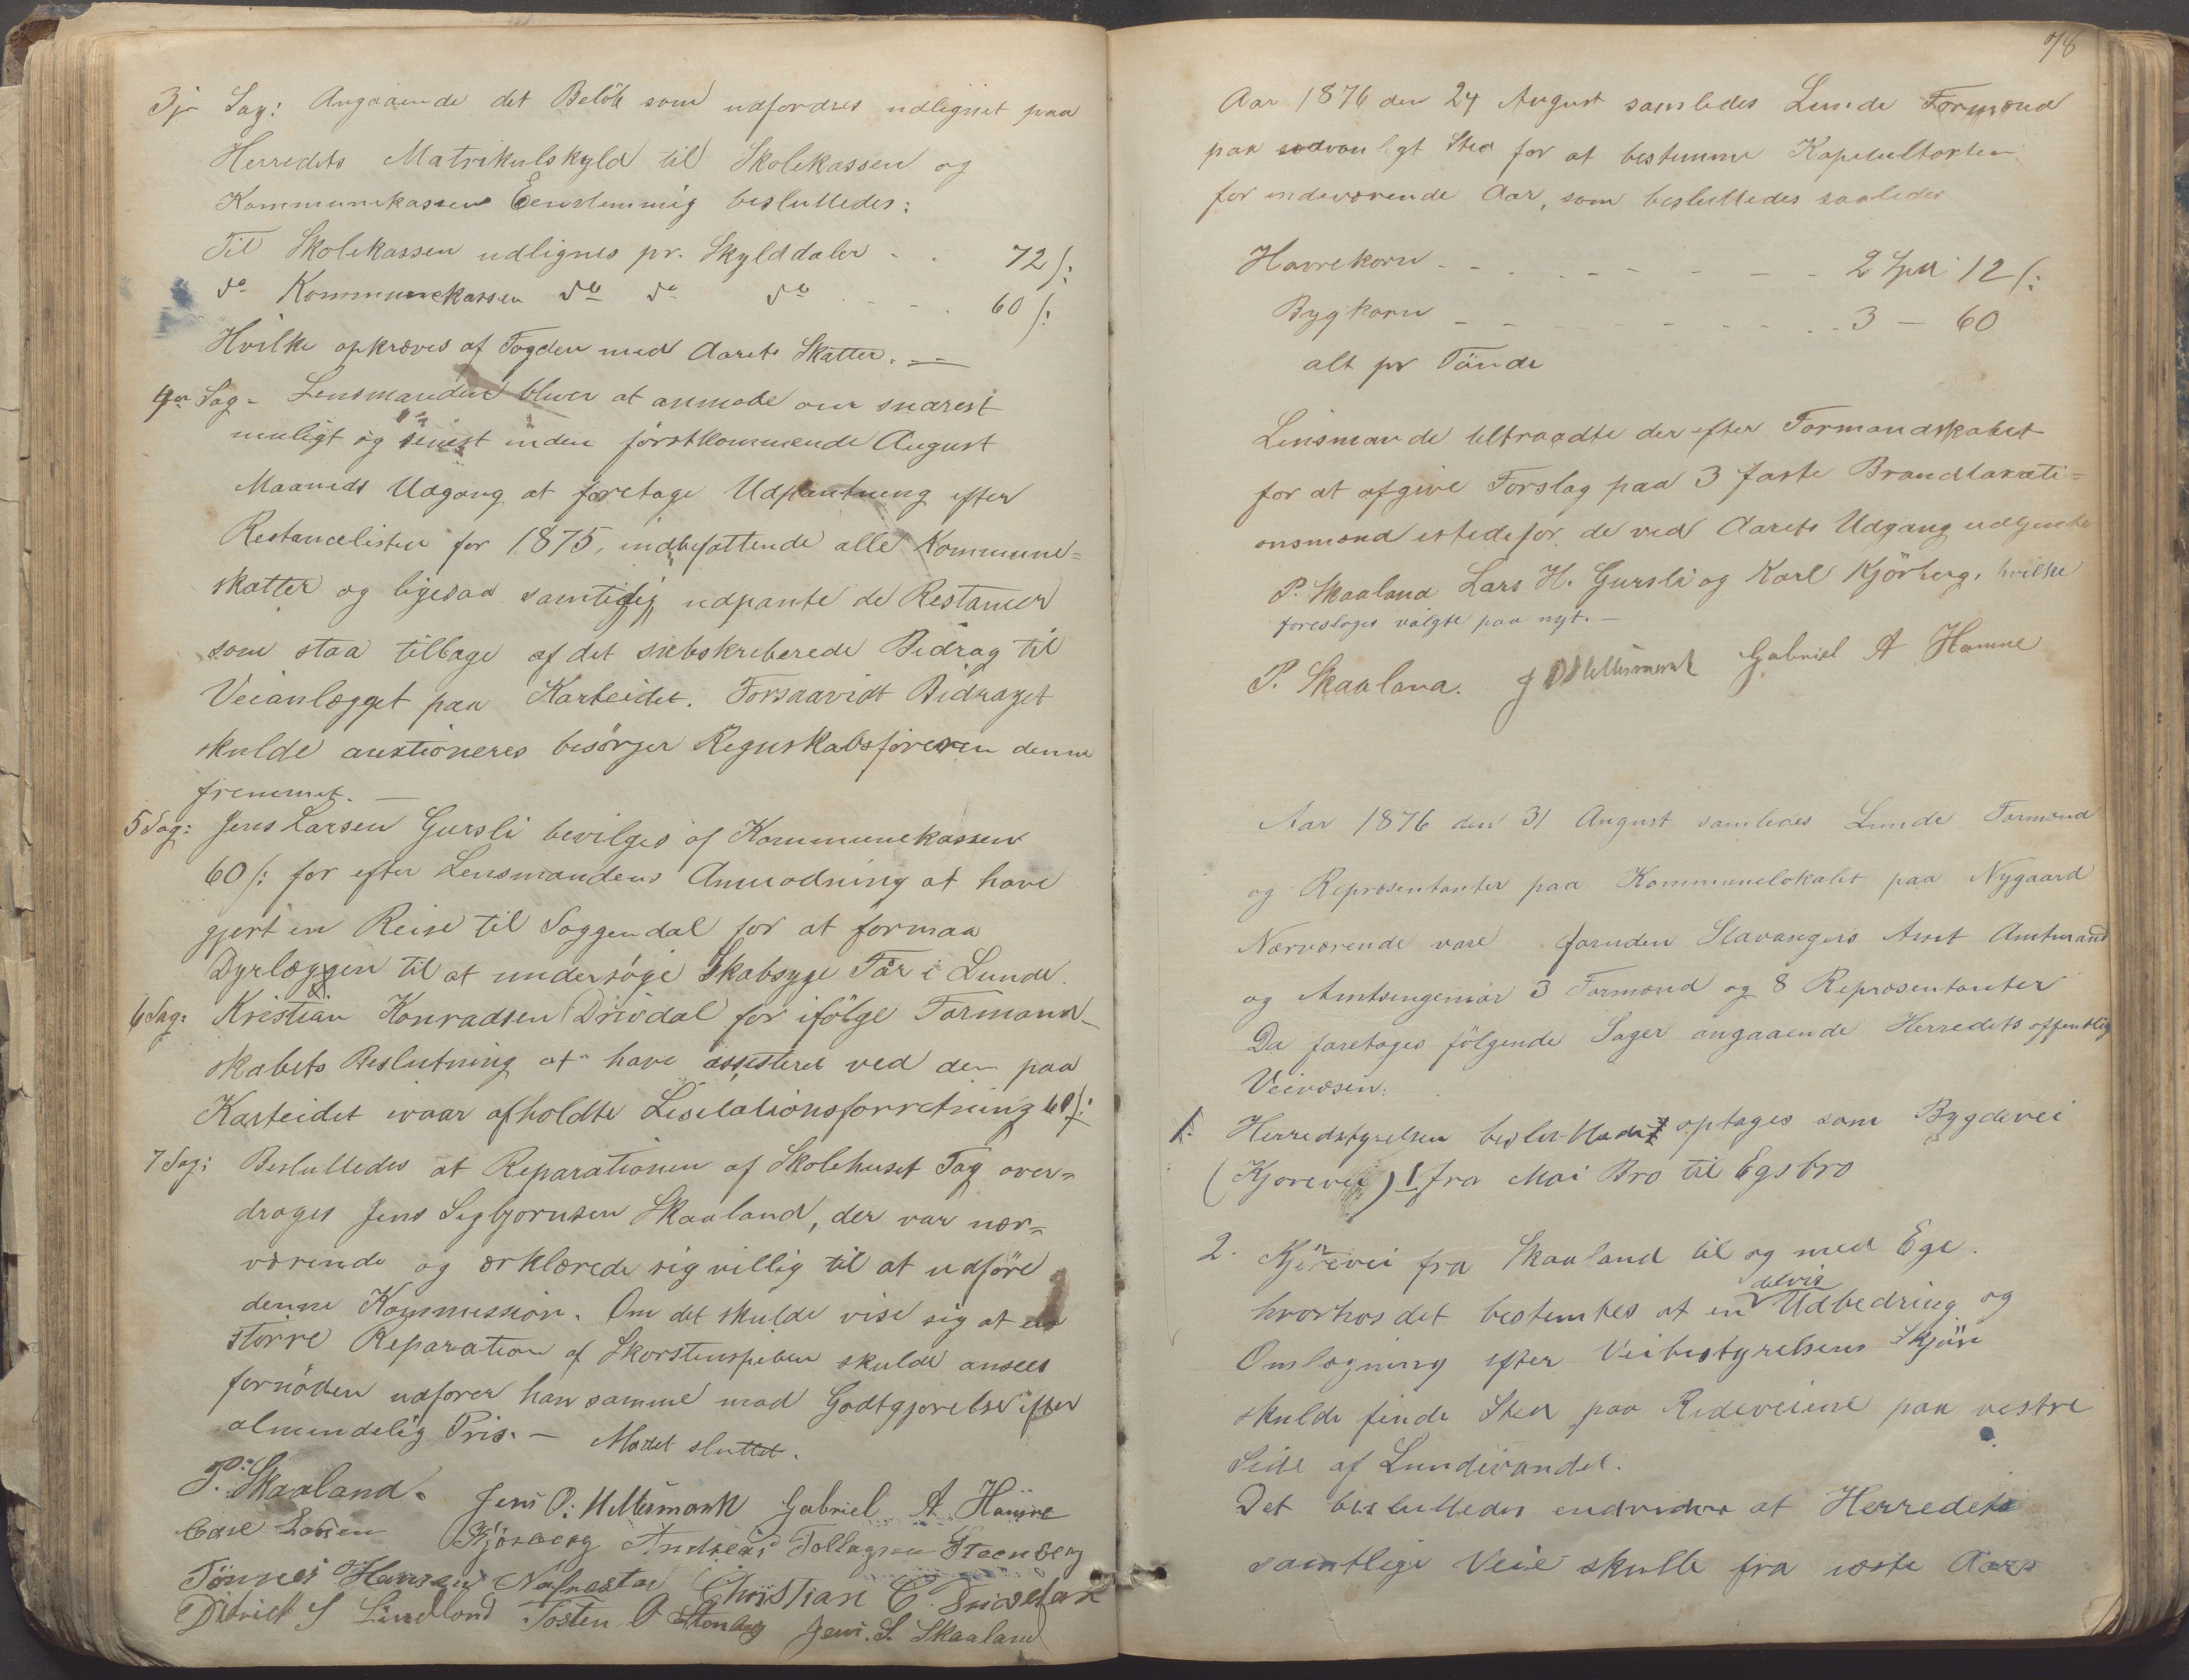 3je Sag: Angaaende det Belöb som udfordres udlignet paa
Herredets Matrikulskyld til Skolekassen og
Kommunekassen Eenstemmig besluttedes:
Til Skolekassen udlignes pr. Skylddaler - . 72 ſ:
do Kommunekassen do do do . - - . 60 ſ:
Hvilke opkræves af Fogden med Aarets Skatter. —
4de Sag - Lensmanden bliver at anmode om snarest
muligt og senest inden förstkommende August
Maaneds Udgang at foretage Udpantning efter
Restancelisten for 1875, indbefattende alle Kommune=
skatter og ligesaa samtidig udpante de Restancer
som staa tilbage af det subskriberede Bidrag til
Veianlægget paa Karteidet. Forsaavidt Bidraget
skulde auktioneres besörger Regnskabsföreren denne
fremmet. —
5 Sag: Jens Larsen Gursli bevilges af Kommunekassen
60 ſ: for efter Lensmandens Anmodning at have
gjort en Reise til Soggendal for at formaa
Dyrlægen til at undersöge Skabsyge Får i Lunde.
6 Sag: Kristian Konradsen Drivdal for ifölge Formand-
skabets Beslutning at have assisteret ved den paa
Karteidet ivaar afholdte Lisitationsforretning 60 ſ:
7 Sag: Besluttedes at Reparationen af Skolehuset Tag over=
drages Jens Sigbjornsen Skaaland, der var nær=
værende og ærklærede sig villig til at udföre
denne Kommission. Om det skulde vise sig at en
större Reparation af Skorstenspiben skulde ansees
fornöden udforer han samme mod Godtgjorelse efter
almindelig Pris. — Mödet sluttet.
P. Skaaland. Jens O. Mellesmonk Gabriel A Hamre
Carl Larsen Kjörberg Andreas Tollagsen Steenberg
Tönnes Hansen Nafrestad Christian C. Drivdal
Didrick S Lindland Tosten O Stenberg Jens. S. Skaaland
78
Aar 1876 den 24 August samledes Lunde Formænd
paa sædvanligt Sted for at bestemme Kapeltaxten
for indeværende Aar, som besluttedes saaledes
Havrekorn - - - - - - - - 2 Spd 12 ſ:
Bygkorn - - - - - - - - 3 — 60
alt pr Tönde
Linsmande tiltraadte derefter Formandskabet
for at afgive Forslag paa 3 faste Brandtaxati=
onsmænd istedefor de ved Aarets Udgang udtjente
P. Skaaland Lars H. Gursli og Karl Kjörberg, hvilke
foresloges valgte paa nyt. —
P. Skaaland. J O Mellesmonk Gabriel A Hamre
Aar 1876 den 31 August samledes Lunde Formænd
og Repræsentanter paa Kommunelokalet paa Nygaard
Nærværende vare foruden Stavangers Amt Amtmand
og Amtsingeniör 3 Formænd og 8 Repræsentanter
Da foretoges fölgende Sager angaaende Herredets offentlig
Veivæsen:
1. Herredstyrelsen besluttede optages som Bygdevei
(Kjorevei) 1 fra Moi Bro til Egsbro
2. Kjörevei fra Skaaland til og med Ege.
hvorhos det bestemtes at en delvis Udbedring og
Omlægning efter Veibestyrelsens Skjön
skulde finde Sted paa Rideveiene paa vestre
Side af Lundevandet.
Det besluttedes endvidere at Herredets
samtlige Veie skulle fra næste Aars